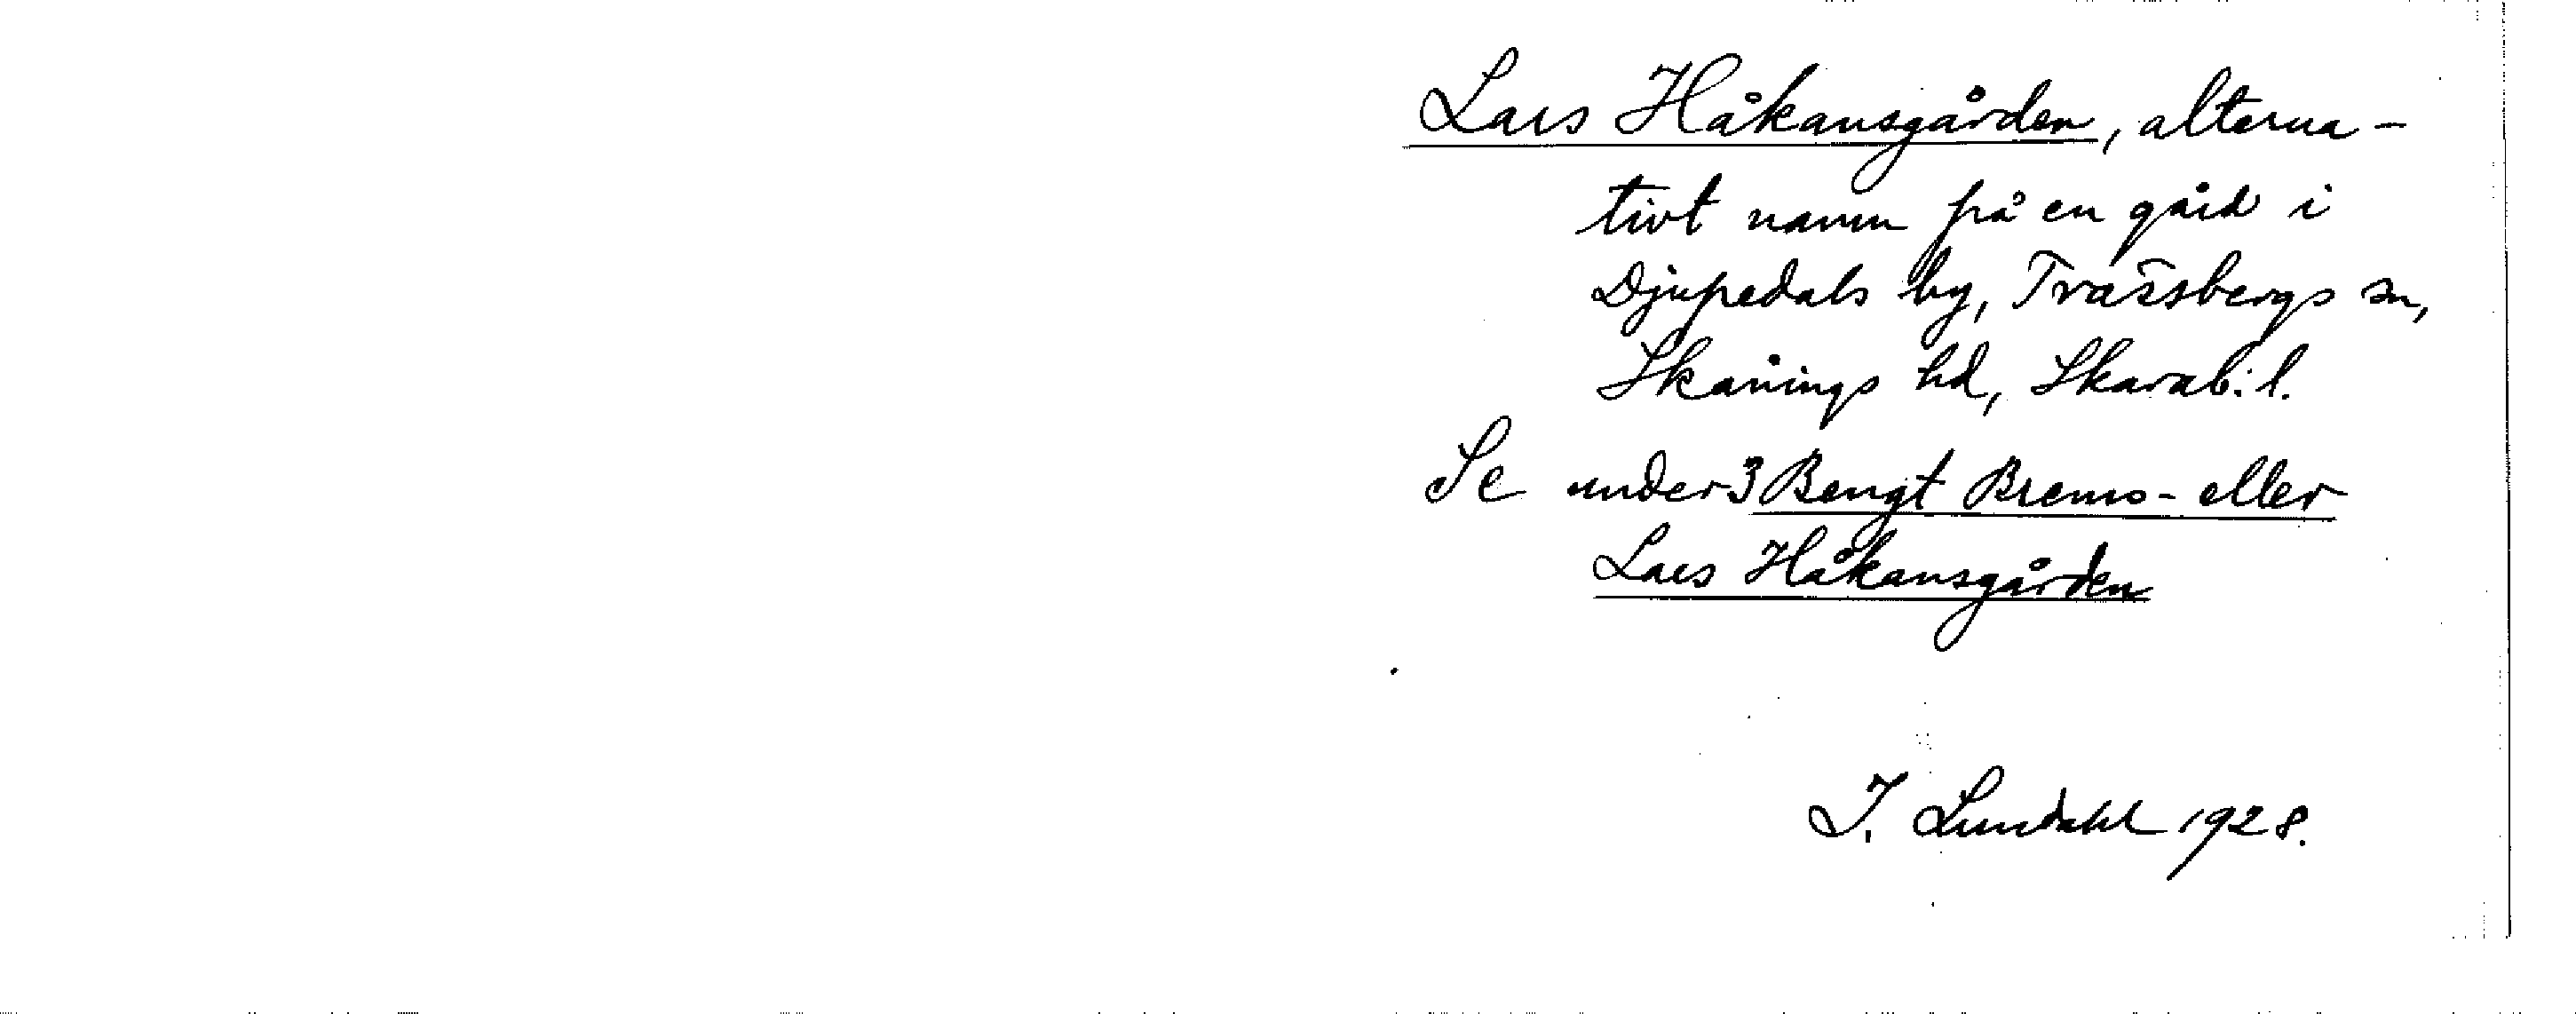 Lars Håkansgården, alterna-
tivt namn på en gård i
Djupedals by, Trässbergs sn,
Skånings hd, Skarab. l.
Se under 3 Bengt Brems- eller
Lars Håkansgården
I. Lundahl 1928.